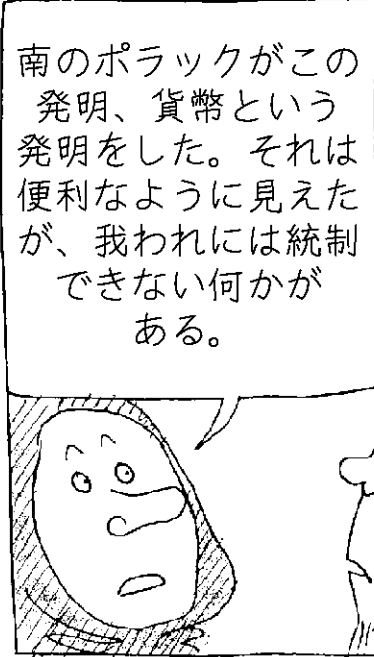 南のポラックがこの
発明、貨幣という
発明をした。それは
便利なように見えた
が、我われには統制
できない何かが
ある。